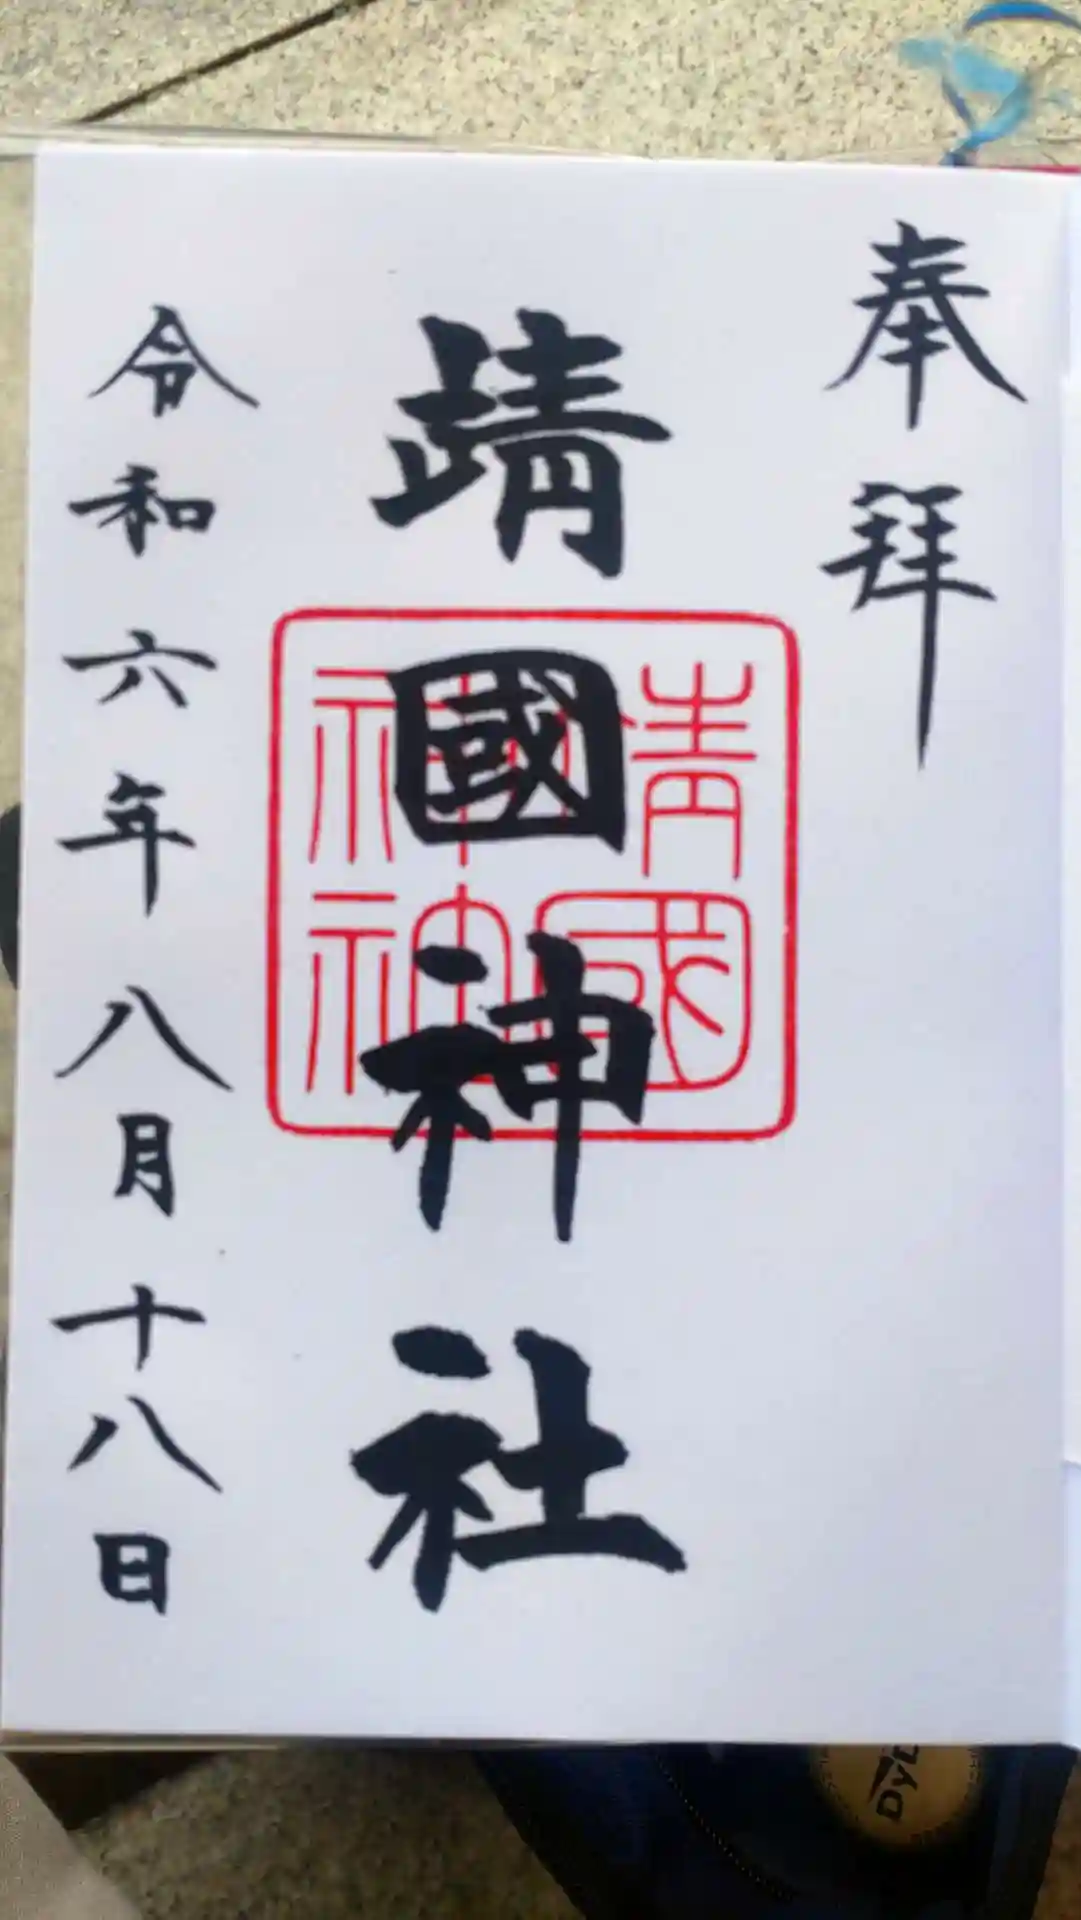 奉拝
靖國神社
靖國
神社
令和六年八月十八日